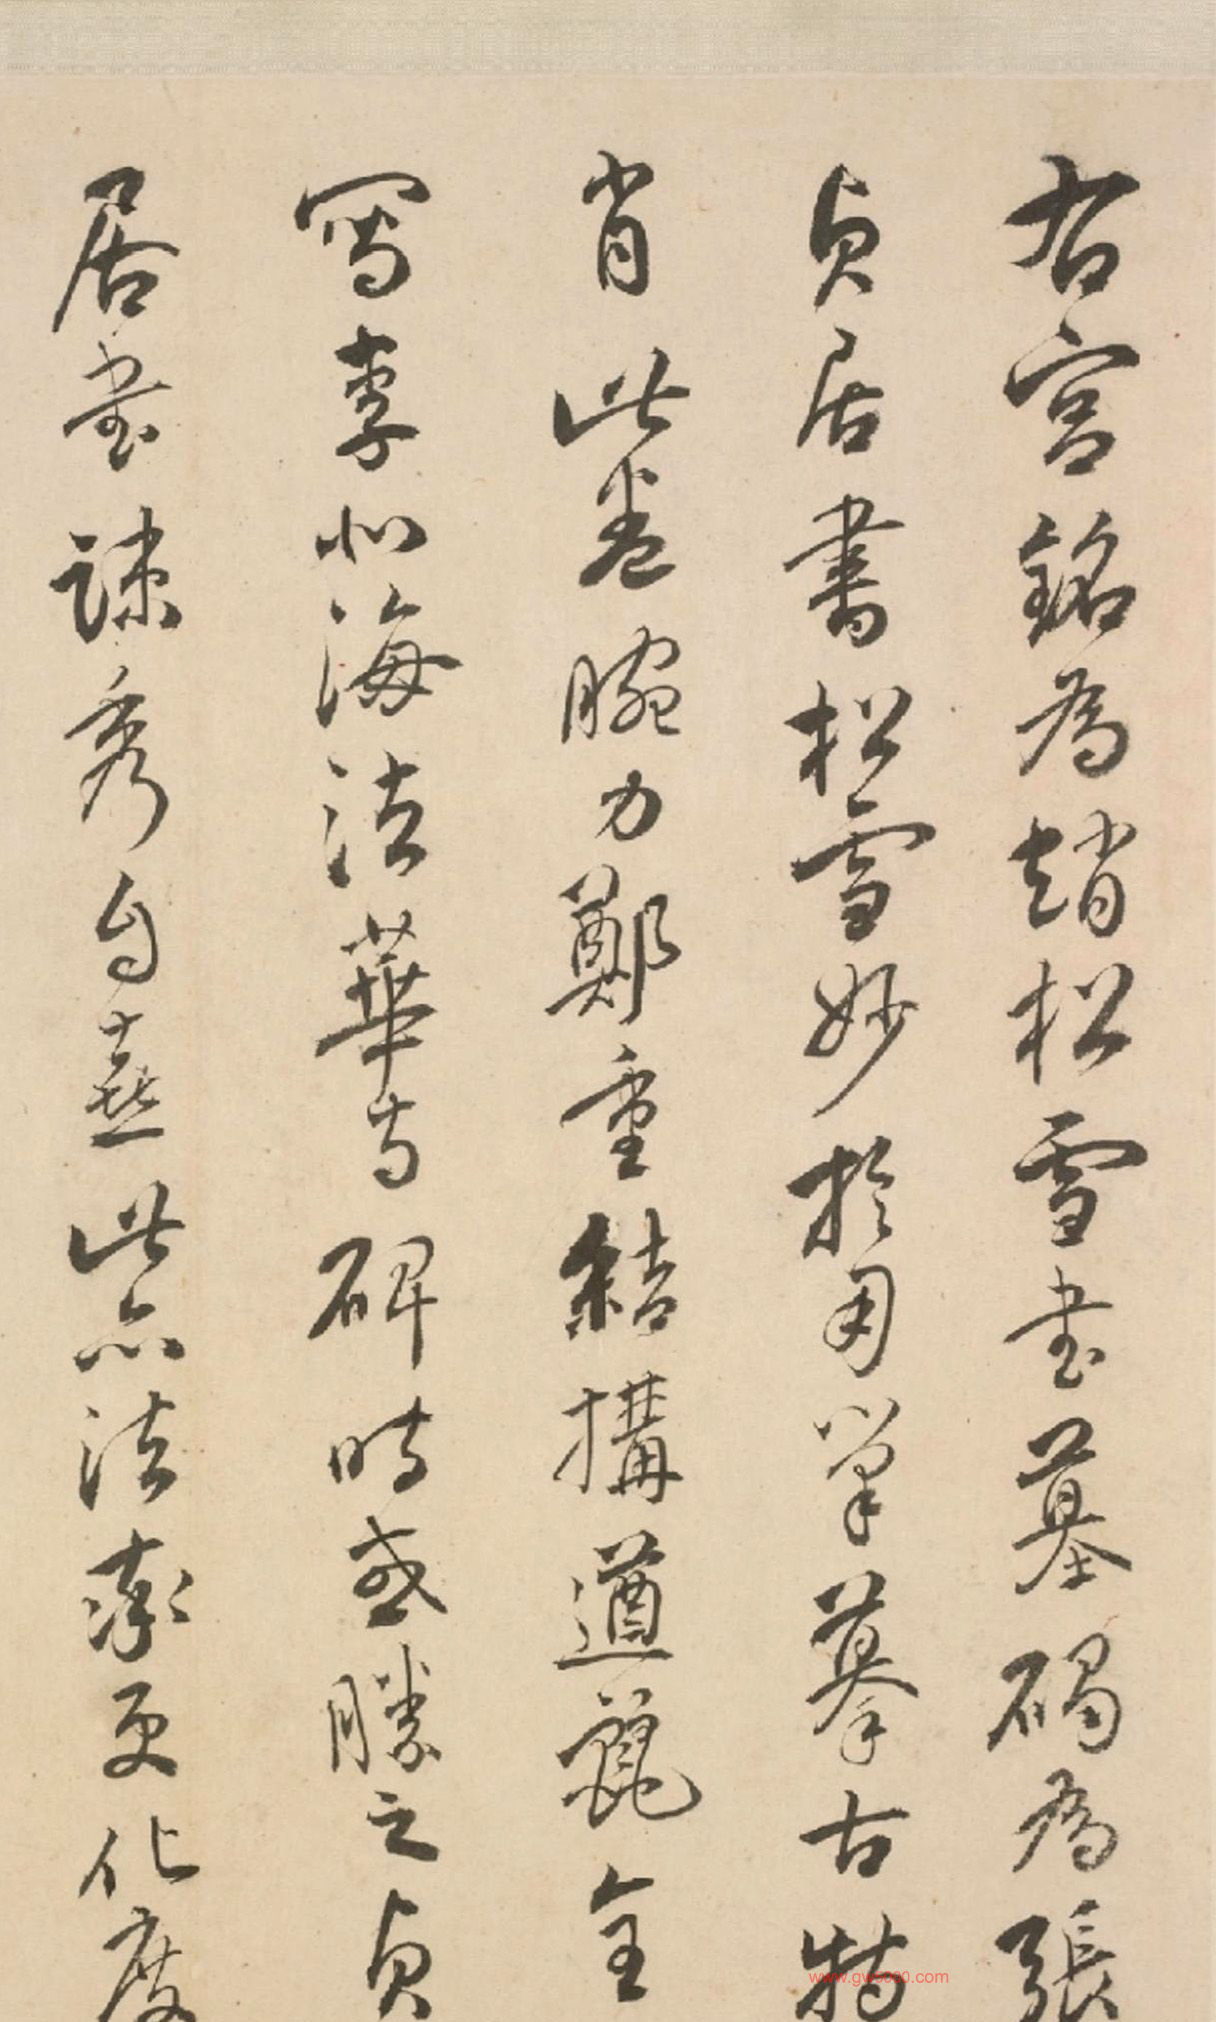 右宫銘為趙松雪書墓碣為張
貞居書松雪妙於用筆摹古特
肖此卷腕力鄭重結搆遒麗全
寫李北海法華寺碑時或勝之貞
居書疎秀自喜此亦法率更化度